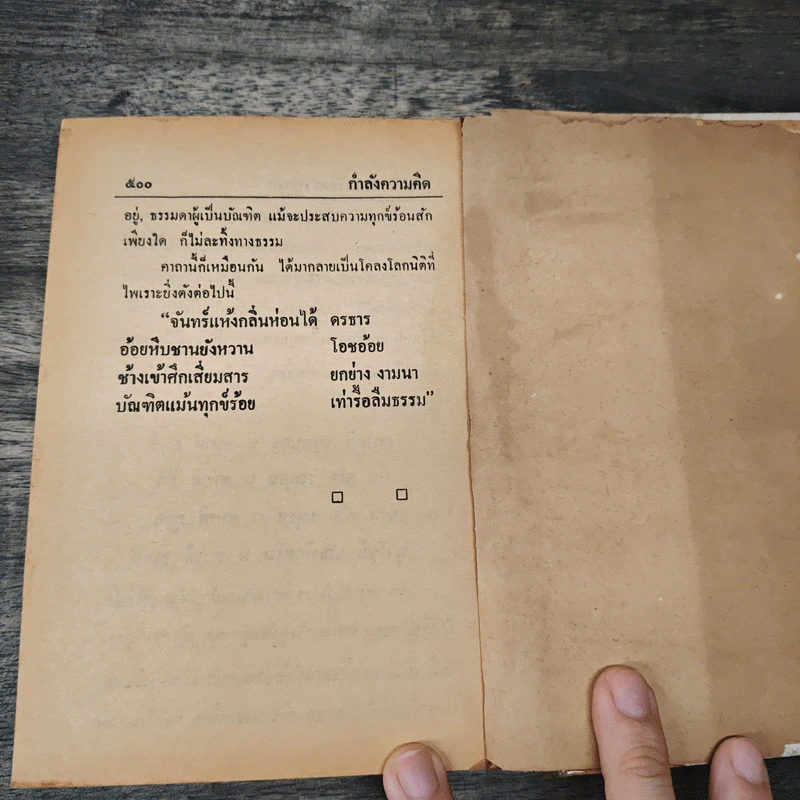 ๕๐๐ กำลังความคิด
อยู่, ธรรมดาผู้เป็นบัณฑิต แม้จะประสบความทุกข์ร้อนสัก
เพียงใด ก็ไม่ละทิ้งทางธรรม
คาถานี้ก็เหมือนกัน ได้มากลายเป็นโคลงโลกนิติที่
ไพเราะยิ่งดังต่อไปนี้
“จันทร์แห้งกลิ่นห่อนได้ ดรธาร
อ้อยหีบชานยังหวาน โอชอ้อย
ช้างเข้าศึกเสี่ยมสาร ยกย่าง งามนา
บัณฑิตแม้นทุกข์ร้อย เท่ารื้อลืมธรรม”